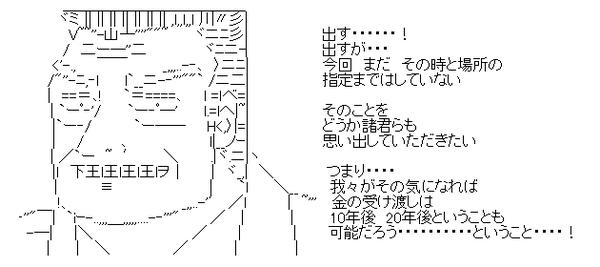 出す‥‥‥！
出すが‥・
今回　まだ　その時と場所の
指定まではしていない
そのことを
どうか諸君らも
思い出していただきたい
つまり‥‥
我々がその気になれば
金の受け渡しは
10年後　20年後ということも
可能だろう‥‥‥‥‥ということ‥‥！